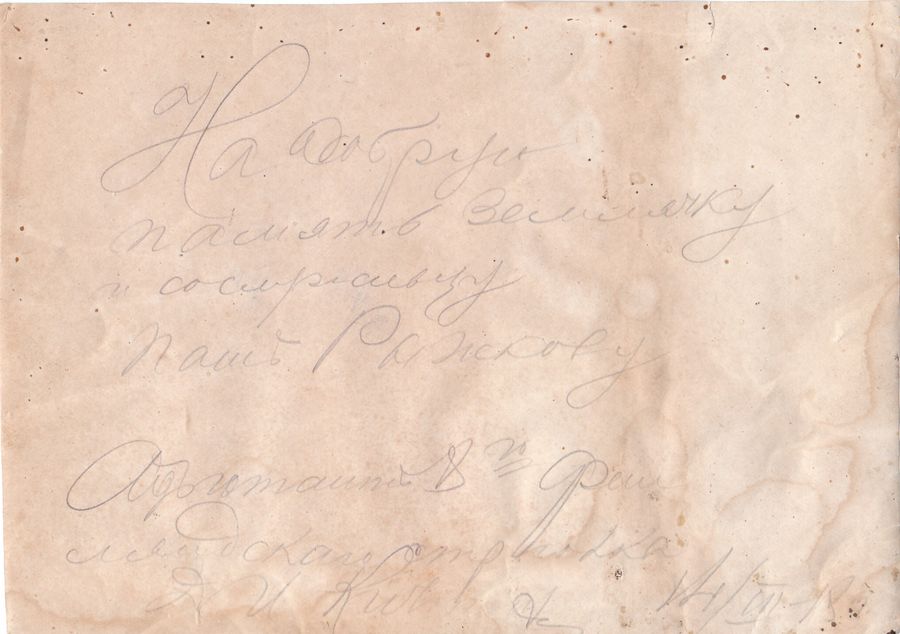 На добрую
память земляку
и сослуживцу
Пашѣ Рыжкову
Адъютантъ 8го Фин
ляндскаго стр полка
Я И
14/III-18